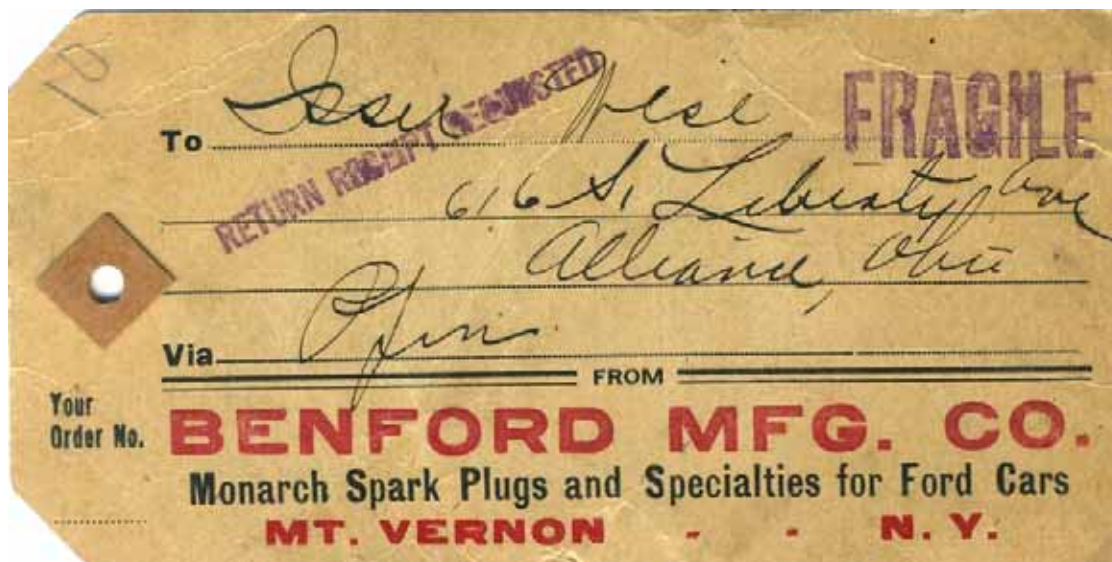 10
To Isser Wise
FRAGILE
RETURN RECEIPT REQUESTED
616 S. Liberty Ave
Alliance, Ohio
Via
FROM
Your
Order No.
BENFORD MFG. CO.
Monarch Spark Plugs and Specialties for Ford Cars
MT. VERNON - - N. Y.